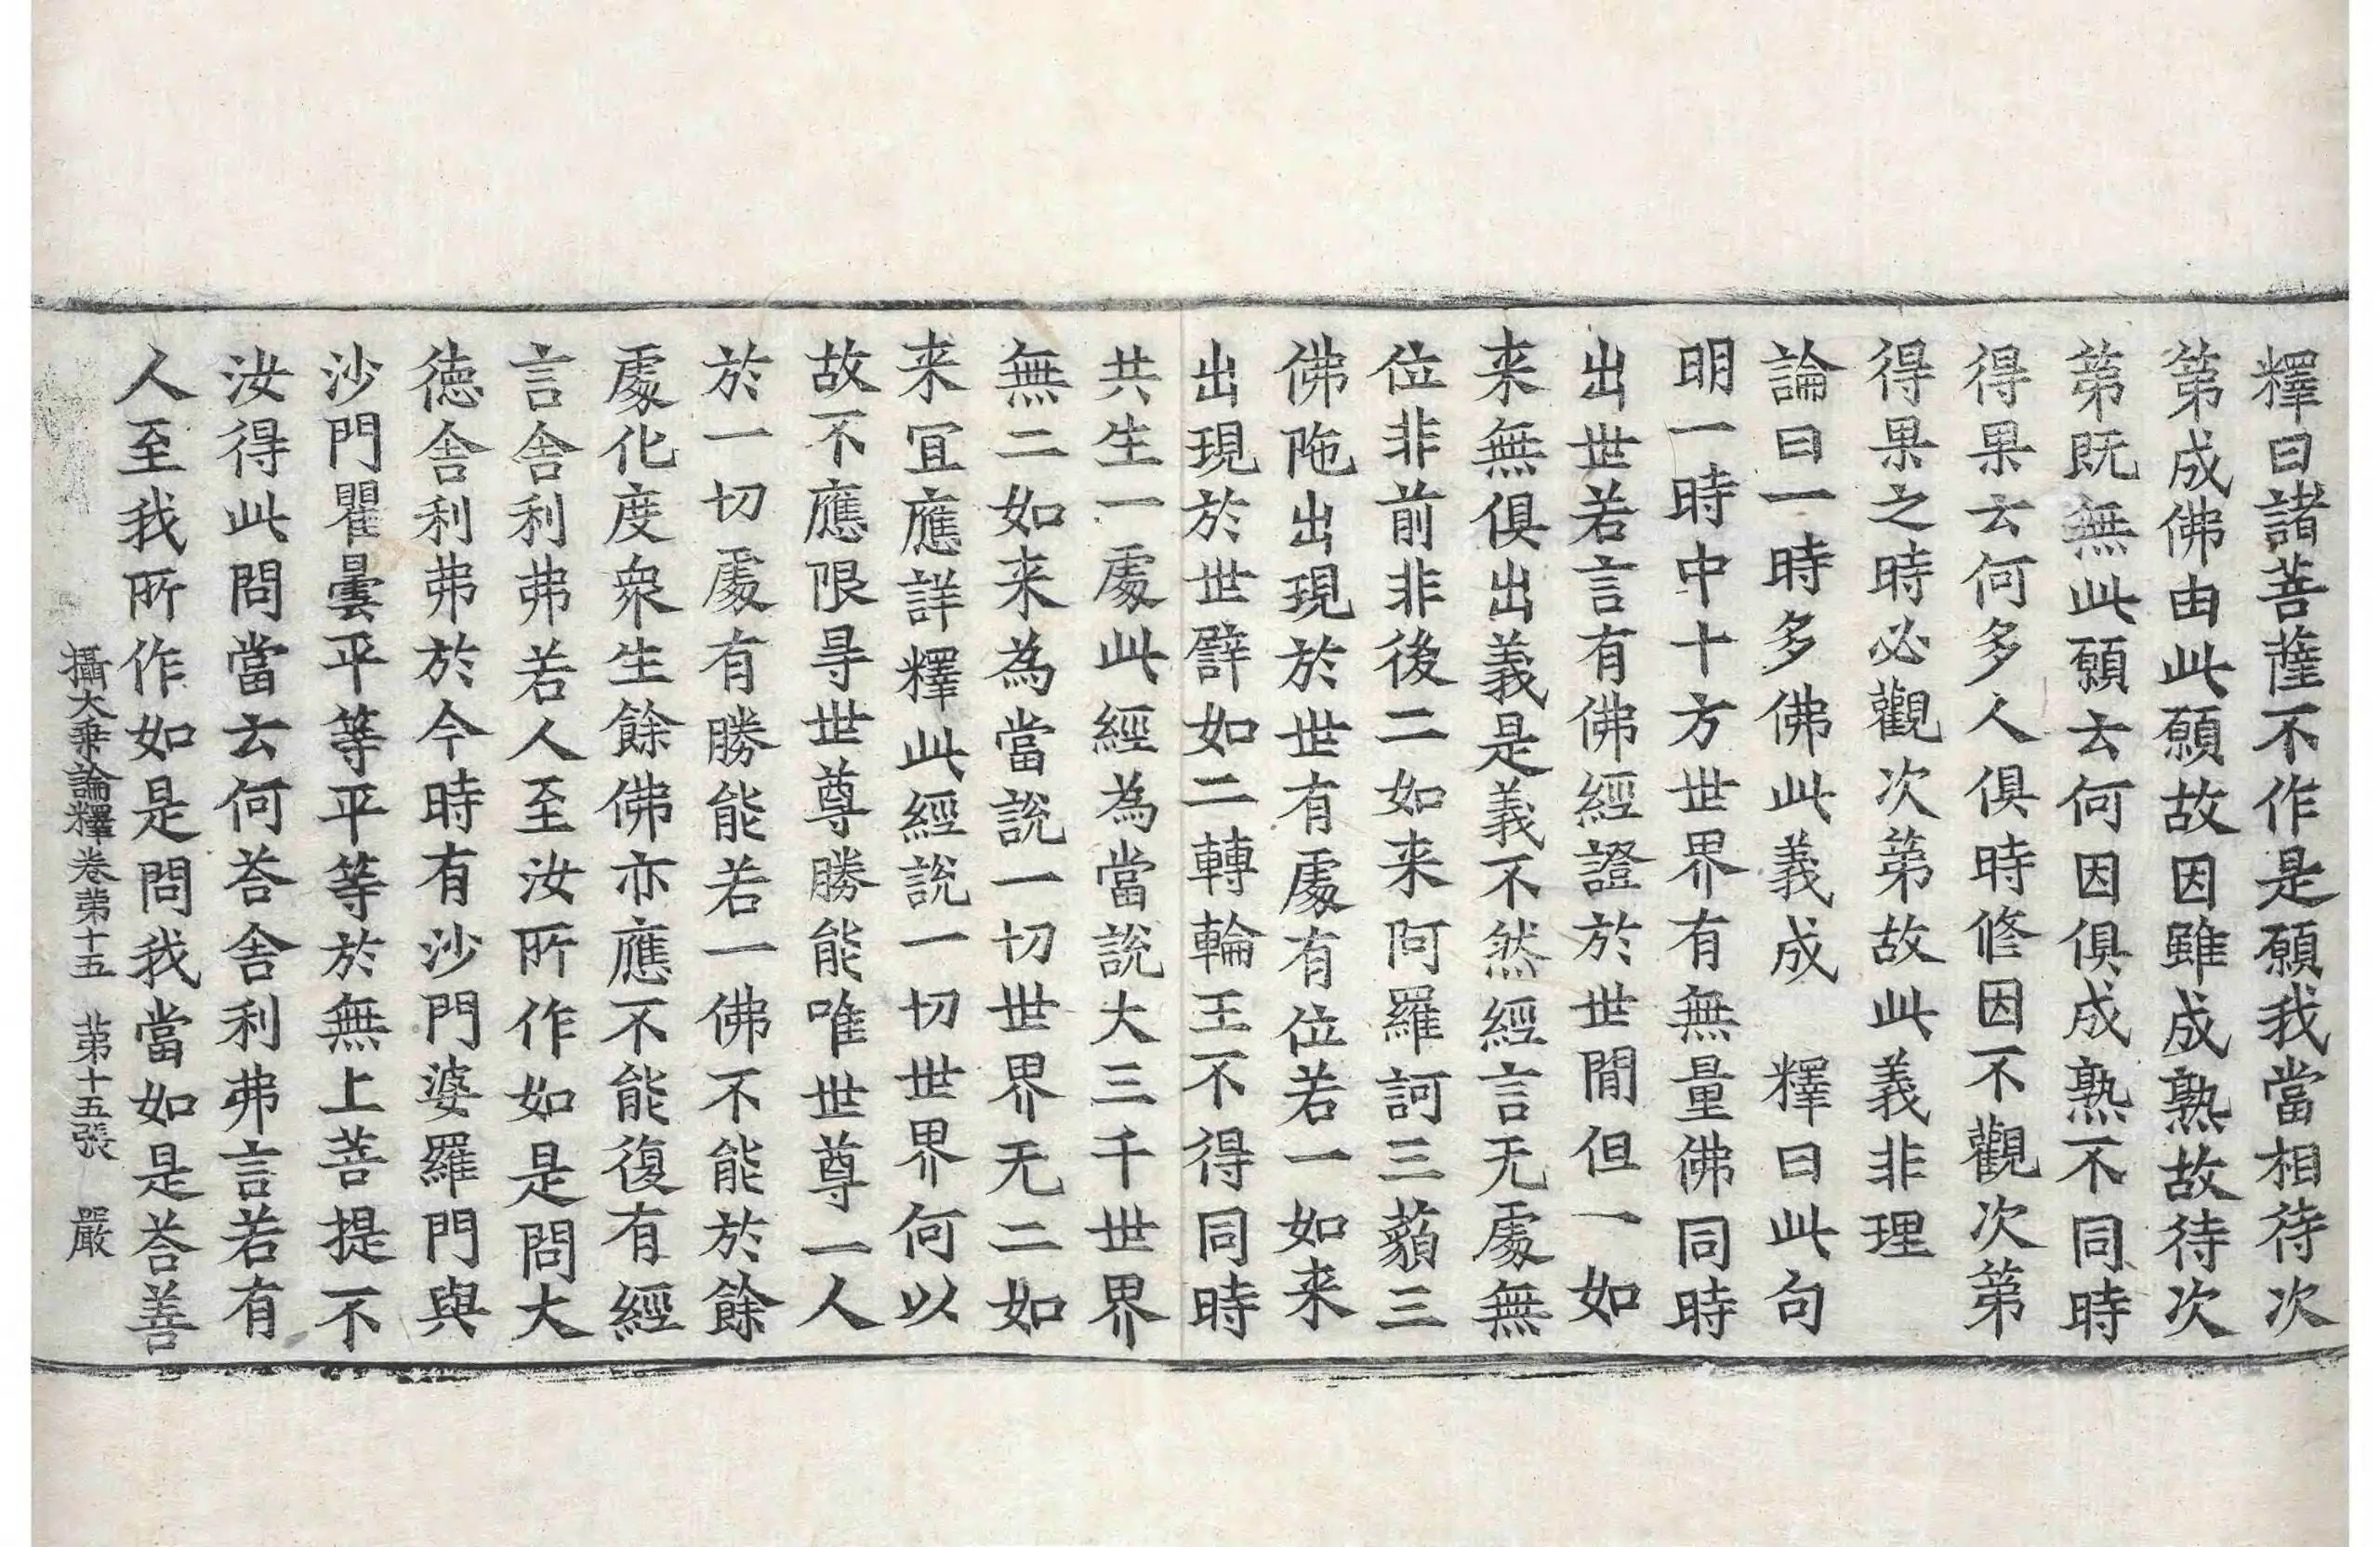 釋曰諸菩薩不作是願我當相待次
第成佛由此願故因雖成熟故待次
第既無此願云何因俱成熟不同時
得果云何多人俱時修因不觀次第
得果之時必觀次第故此義非理
論曰一時多佛此義成　釋曰此句
明一時中十方世界有無量佛同時
出世若言有佛經證於世間但一如
来無俱出義是義不然經言无處無
位非前非後二如来阿羅訶三藐三
佛陁出現於世有處有位若一如来
出現於世譬如二轉輪王不得同時
共生一處此經為當說大三千世界
無二如来為當說一切世界无二如
来冝應詳釋此經說一切世界何以
故不應限㝵世尊勝能唯世尊一人
於一切處有勝能若一佛不能於餘
處化度衆生餘佛亦應不能復有經
言舎利弗若人至汝所作如是問大
德舎利弗於今時有沙門婆羅門與
沙門瞿曇平等平等於無上菩提不
汝得此問當云何荅舎利弗言若有
人至我所作如是問我當如是荅善
攝大乘論釋卷苐十五　苐十五張　嚴